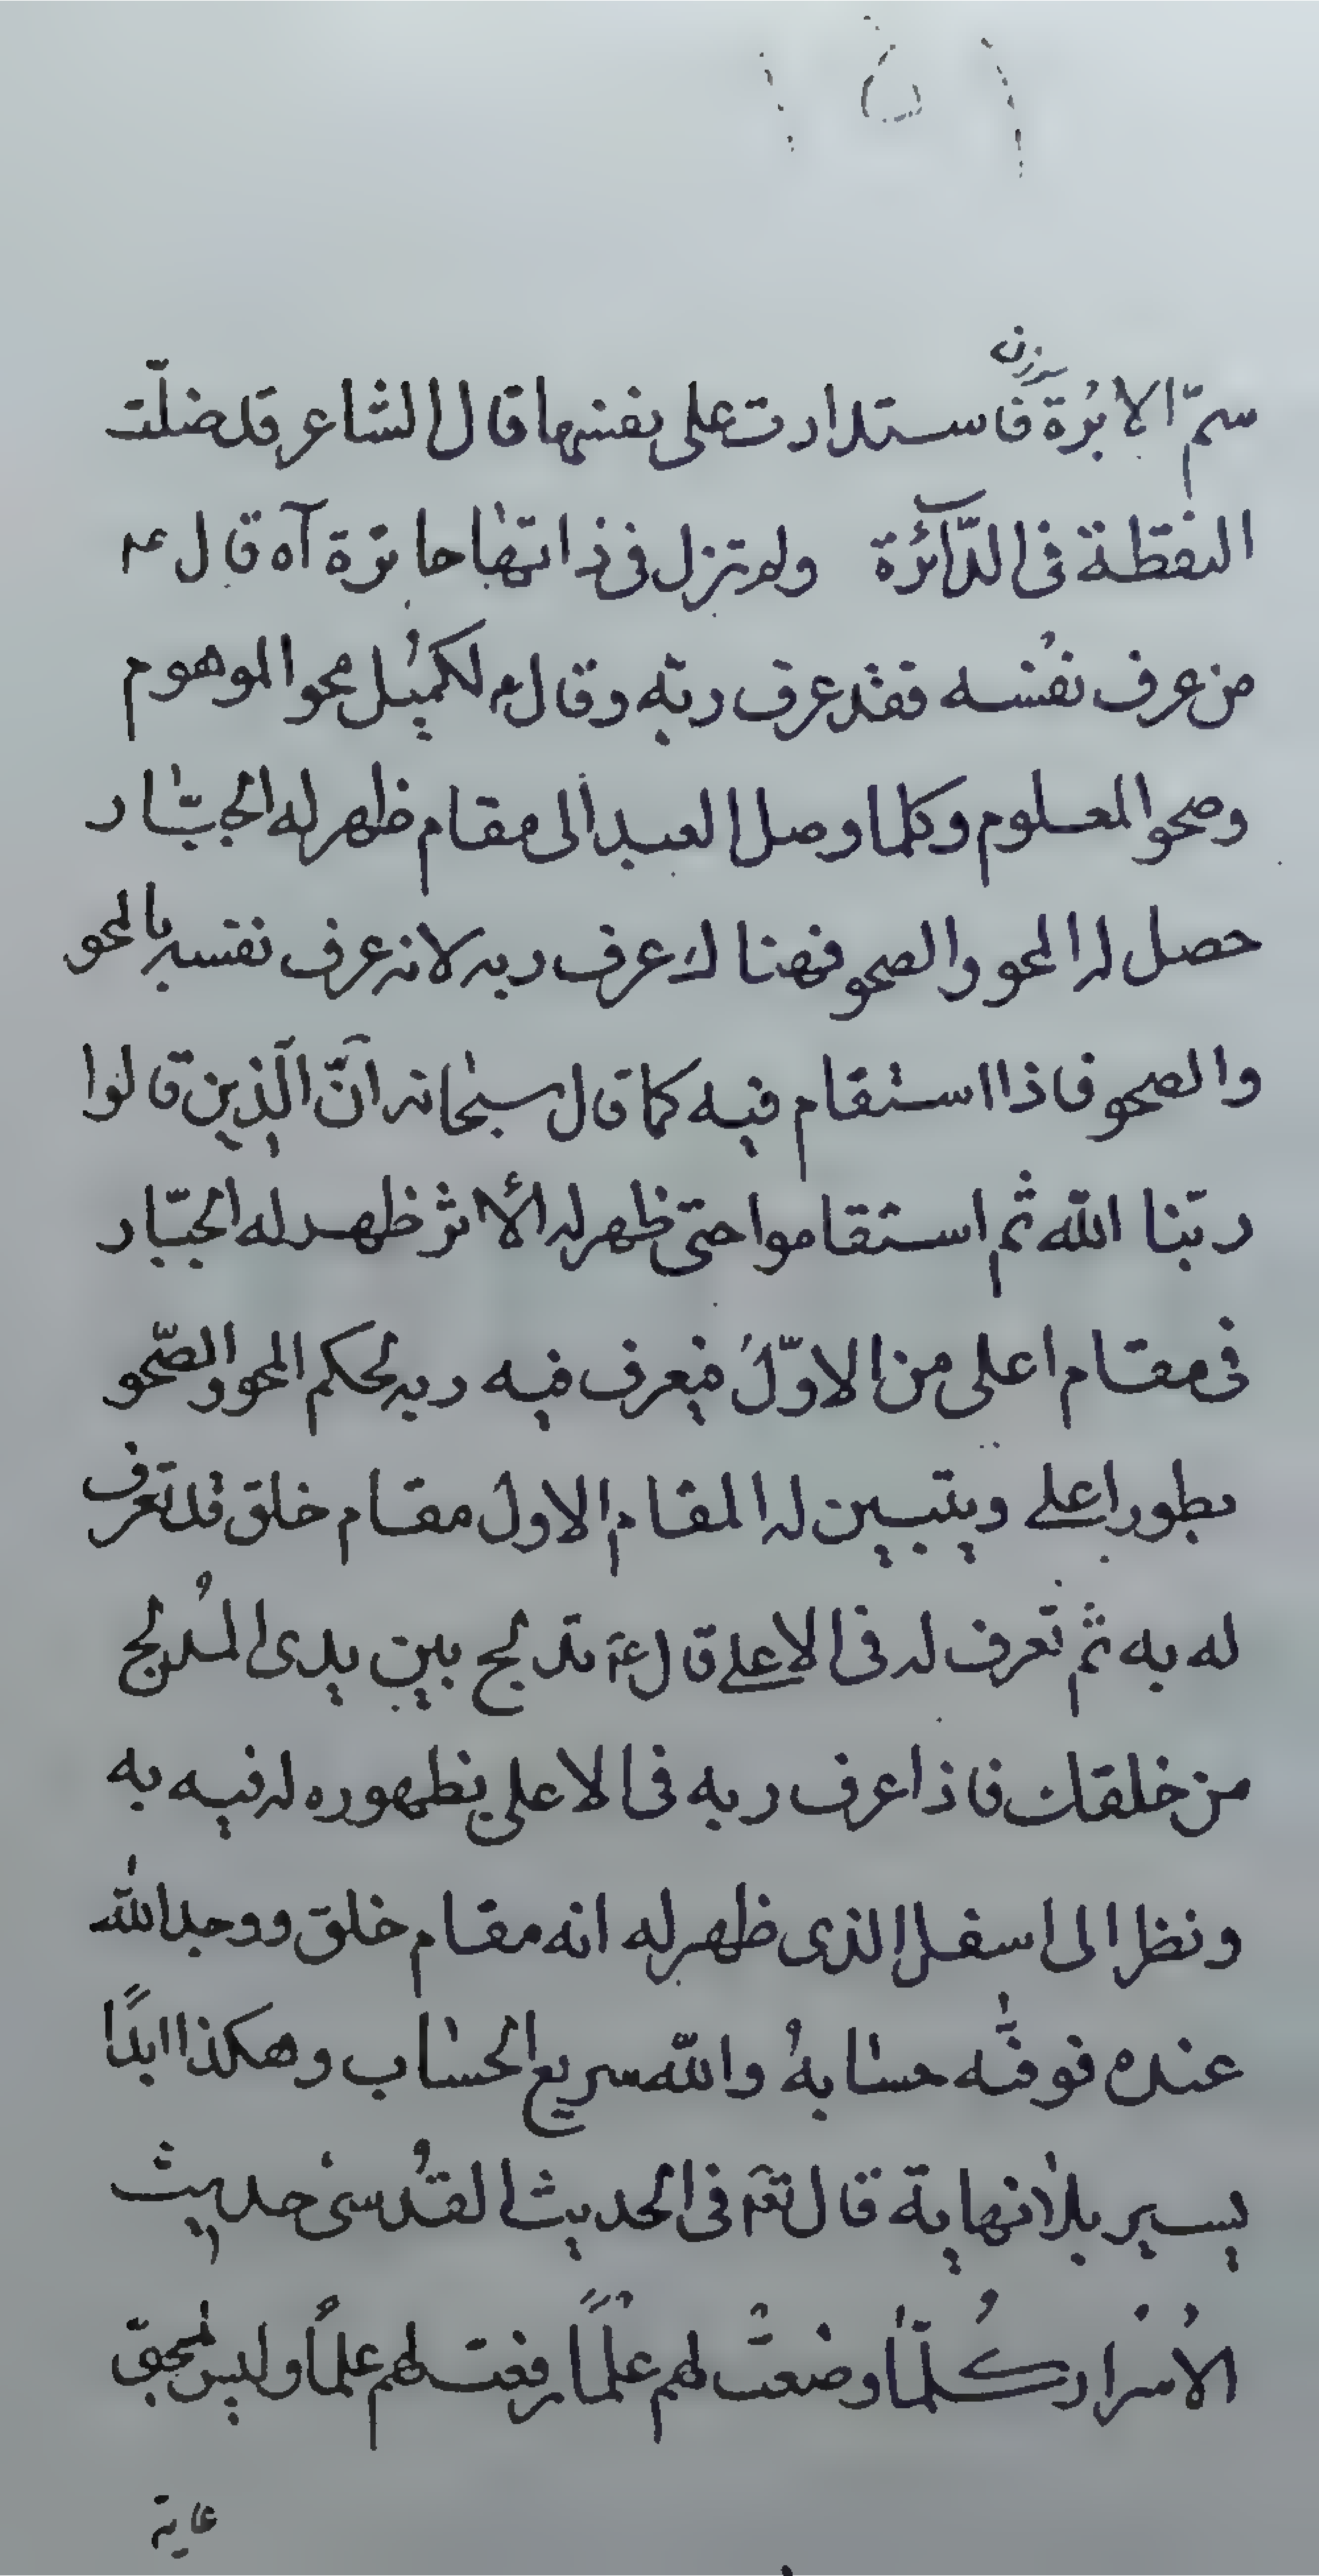 ١٥١
سوزن
سمّ الابُرة فاستدارت على نفسها قال الشاعر قد ضلّت
النقطة فى الدّآئرة ولم تزل فى ذاتها حائرة آه قال ع
من عرف نفسه فقد عرف ربّه وقال ع لكميُل محو الموهوم
وصحو المعلوم وكلما وصل العبد الى مقام ظهر له الجبّار
حصل له المحو والصحو فهنالك عرف ربه لانه عرف نفسه بالمحو
والصحو فاذا استقام فيه كما قال سبحانه انّ الّذين قالوا
ربّنا الله ثم استقاموا حتى ظهر له الأثر ظهر له الجبّار
فى مقام اعلى من الاوّل فيعرف فيه ربه بحكم المحو والصّحو
بطور اعلى ويتبين له المقام الاول مقام خلق قد تعرف
له به ثم تعرف له فى الاعلى قال ع تدلج بين يدى المُدلج
من خلقك فاذا عرف ربه فى الاعلى بظهوره له فيه به
ونظر الى اسفل الذى ظهر له انه مقام خلق ووجد الله
عنده فوفّٰه حسابهُ والله سريع الحساب وهكذا ابدًا
يسير بلا نهاية قال تع فى الحديث القُدسى حديث
الاُسْرار كُلّما وضعتْ لهم علْمًا رفعت لهم علمًا وليس لمحبّتى
غاية